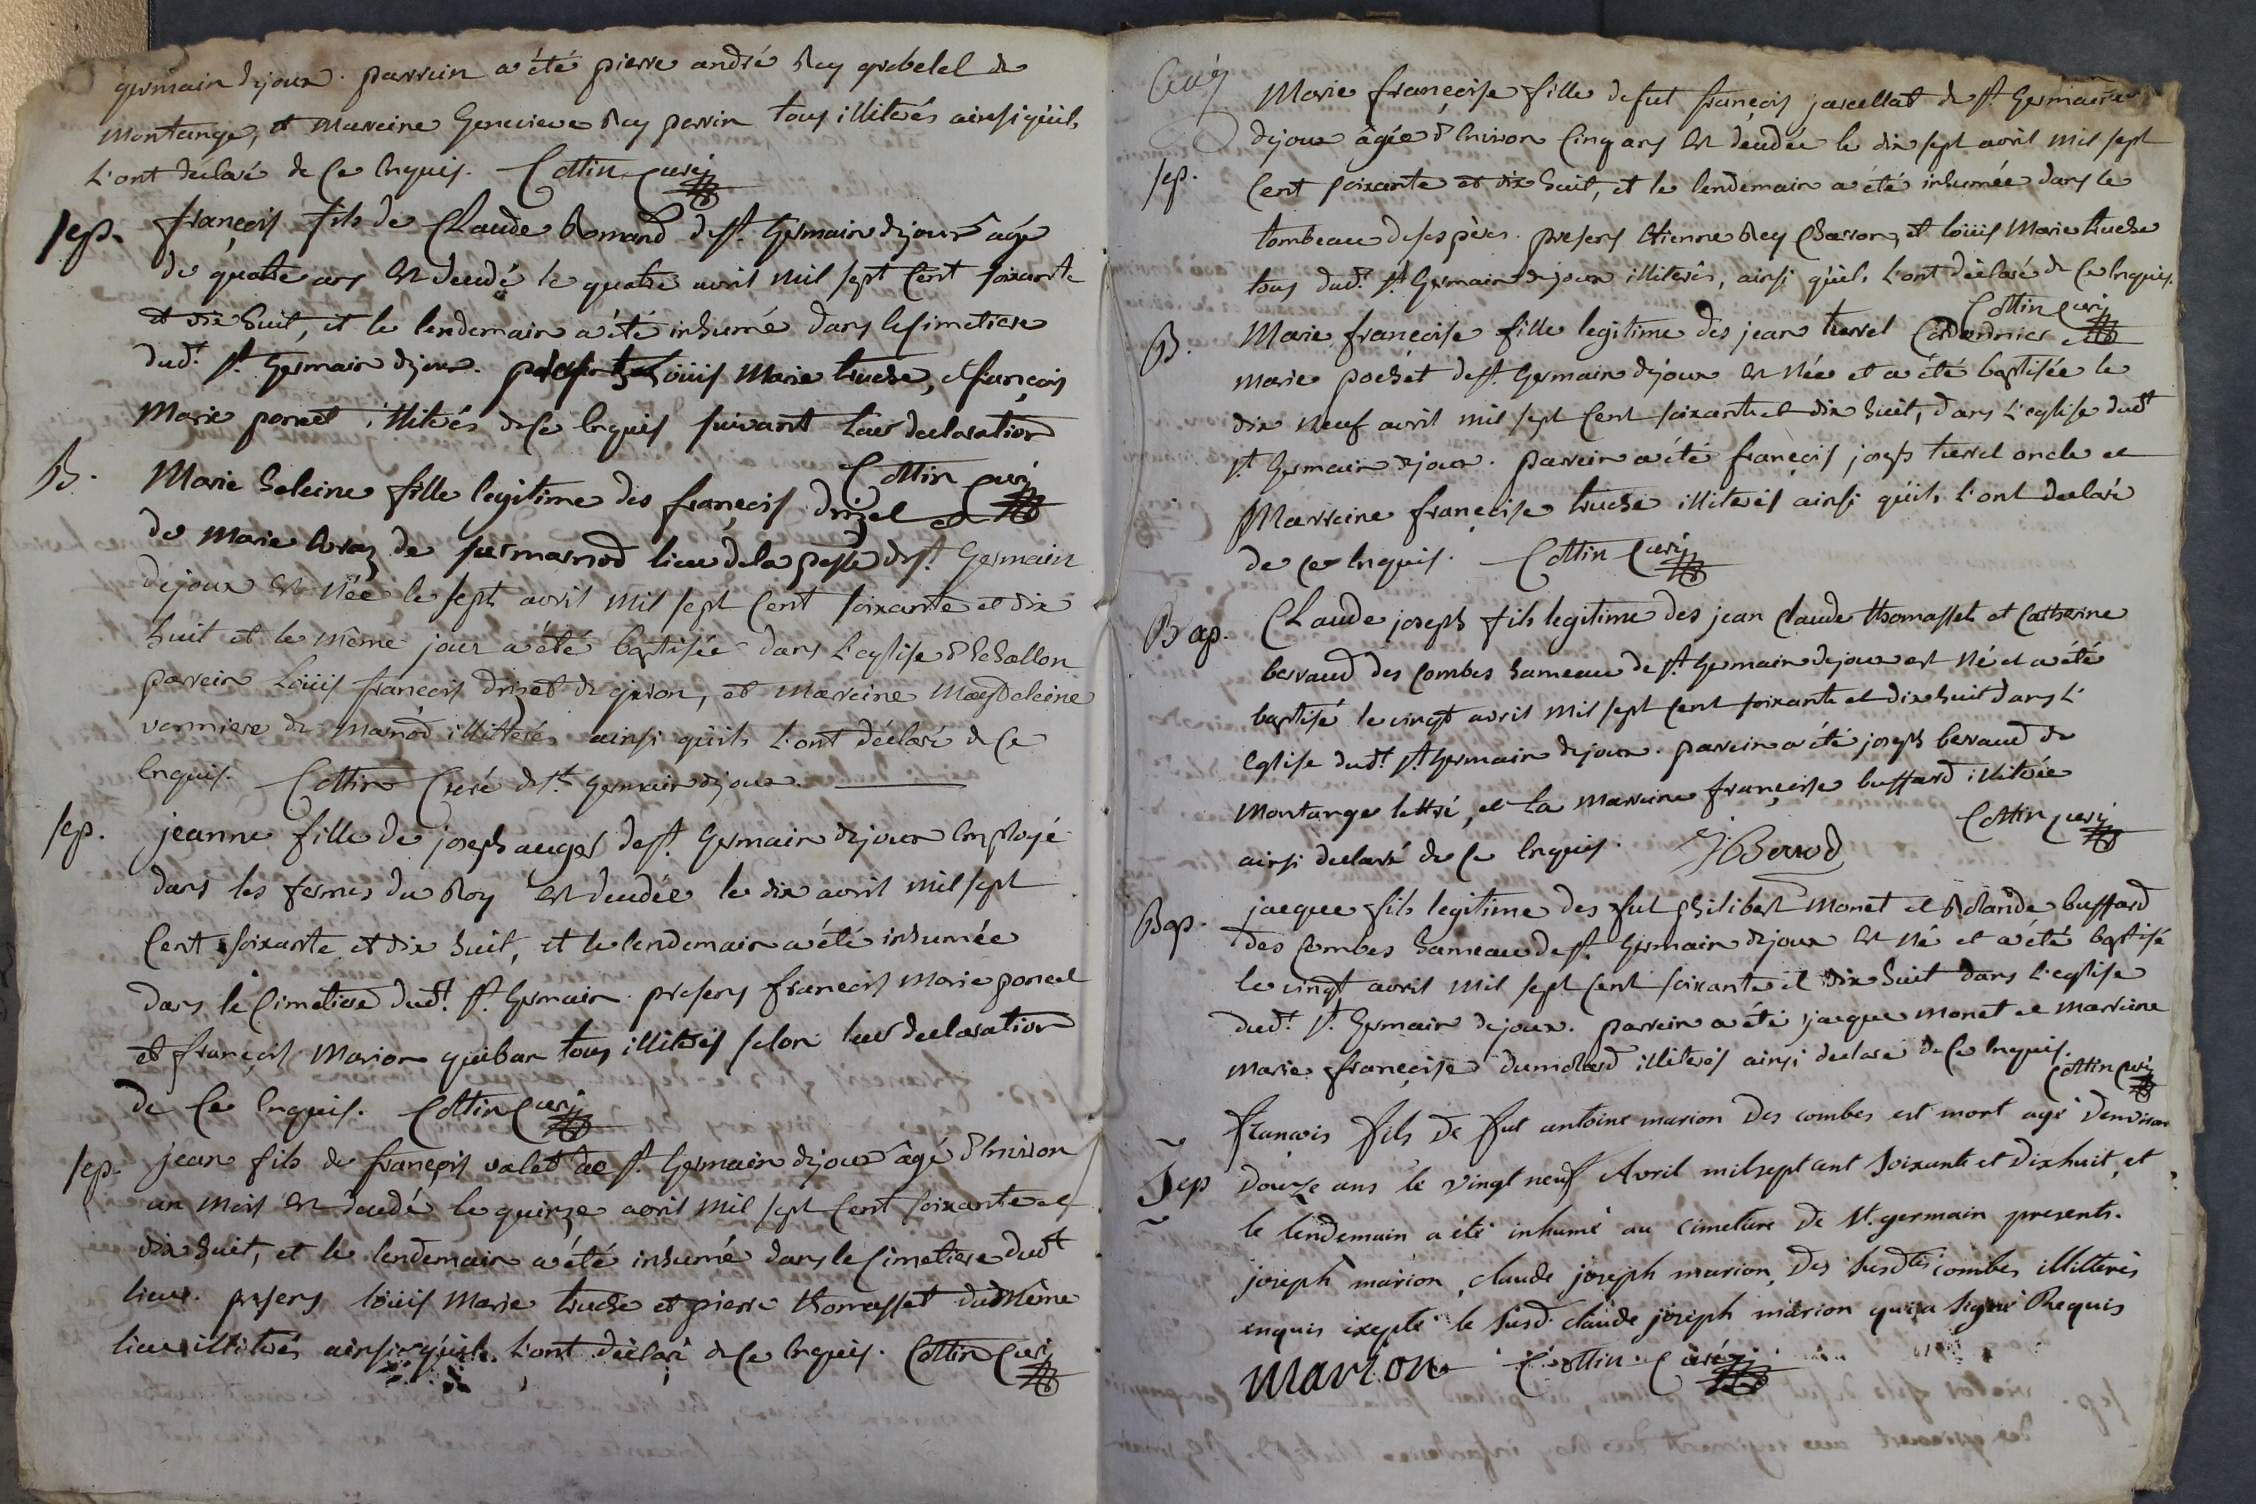 germain dijoux. parrein a été pierre andré Rey grobelel de
Montange, et Marreine Genevieve Rey perrin tous illiterés ainsi qu'ils
l'ont déclaré de ce enquis. Cottin curé
sep. françois fils de Claude Romand de st. Germain dijoux âgé
de quatre ans est deudé le quatre avril mil sept cent soixante
et dix huit, et le lendemain a été inhumé dans le simetiere
dud.t st. Germain dijoux. presents Loüis Marie truche, et françois
Marie poncet illiterés de ce enquis suivant leur declaration
Cottin curé
B. Marie heleine fille legitime des françois drizet et
de Marie de marnod lieu de la poste de st. Germain
dijoux est née le sept avril mil sept cent soixante et dix
huit et le même jour a été baptisée dans l'eglise d'Echallon
parrein Loüis françois drizet de giron, et marreine Magdeleine
vermiere de Marnod illiterés ainsi qu'ils l'ont déclaré de ce
enquis. Cottin Curé de st. Germain dijoux.
sep. jeanne fille de joseph auger de st. Germain dijoux employé
dans les fermes du Roy est deudée le dix avril mil sept
cent soixante et dix huit, et le lendemain a été inhumée
dans le cimetiere dud.t st. Germain. presens françois Marie poncet
et françois Marion guiban tous illiterés selon leur declaration
de ce enquis. Cottin curé
sep. jean fils de françois valet de st. Germain dijoux âgé d'environ
un mois est deudé le quinze avril mil sept cent soixante et
dix huit, et le lendemain a été inhumé dans le cimetiere dud.t
lieu. presens loüis Marie truche et pierre thomasset dud même
lieu illiterés ainsi qu'ils l'ont déclaré de ce enquis. Cottin curé
Marie françoise fille de fut françois jarcellat de st. Germain
dijoux âgée d'environ cinq ans est deudée le dix sept avril mil sept
sep. cent soixante et dix huit, et le lendemain a été inhumée dans le
tombeau de ses pères. presens etienne Rey charron, et loüis Marie truche
tous dud.t st. Germain dijoux illiterés, ainsi qu'ils l'ont déclaré de ce enquis.
Cottin curé
B. Marie françoise fille legitime des jean turrel cordonnier et
marie pochet de st. Germain dijoux est née et a été baptisée le
dix neuf avril mil sept cent soixante et dix huit, dans l'eglise dud.t
st. Germain dijoux. parrein a été françois joseph turrel oncle et
Marreine françoise truche illiterés ainsi qu'ils l'ont declaré
de ce enquis. Cottin curé
Bap. Claude joseph fils legitime des jean claude thomasset et Catherine
berraud des combes hameau de st. Germain dijoux est né et a été
baptisé le vingt avril mil sept cent soixante et dix huit dans l'
eglise dud.t st. Germain dijoux. parrein a été joseph berraud de
Montange lettré, et la marreine françoise buffard illiterée
ainsi declaré de ce enquis. J Berrod Cottin curé
Bap. jacque fils legitime des fut philibert Monet et Rolande buffard
des combes hameau de st. Germain dijoux est né et a été baptisé
le vingt avril mil sept cent soixante et dix huit dans l'eglise
dud.t st. Germain dijoux. parrein a été jacque monet et marreine
marie françoise dumolard illiterés ainsi declaré de ce enquis.
Cottin curé
francois fils de fut antoine marion des combes est mort agé denviron
Sep douze ans le vingt neuf Avril mil sept cent soixante et dixhuit, et
le lendemain a été inhumé au cimetiere de St. germain presents.
joseph marion, claude joseph marion, des susd.tes combes illitterés
enquis exepté le susd. claude joseph marion qui a signé Requis
Marion Cottin Curé